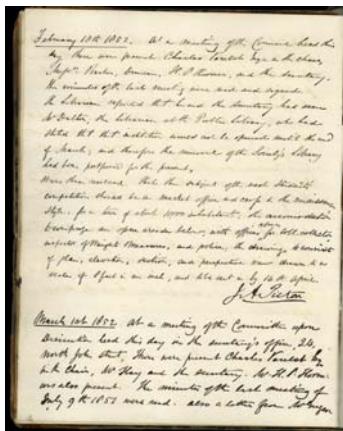 February 10th 1852. At a meeting of the Council held this
day there were present Charles Verelst Esqr in the chair,
Messrs Barker, Duncan, H. P. Horner, and the Secretary.
The minutes of the last meeting were read and signed.
the Librarian reported that he and the Secretary had seen
Mr Dalton, the Librarian at the Public Library, who had
stated that that institution would not be opened until the end
of March, and therefore the removal of the Society's Library
had been postponed for the present.
It was then resolved that the subject of the next Students'
competition should be a market office and in the
style. for a town of about 5000 inhabitants, the accommodation
to comprise an open arcade below, with offices above for toll collector
inspector of Weights Measures, and police, the drawings to consist
of plan, elevation, section, and perspective view drawn to a
scale of 8 feet to an inch, and to be sent in by 14th April.
J. A. Picton
March 10th 1852 At a meeting of the Committee upon
held this day in the Secretary's office, 24,
North John Street, There were present Charles Verelst Esq
in the Chair, Mr Hay and the Secretary. Mr H. P. Horner
was also present. The minutes of the last meeting of
July 9th 1851 were read. also a letter from Mr